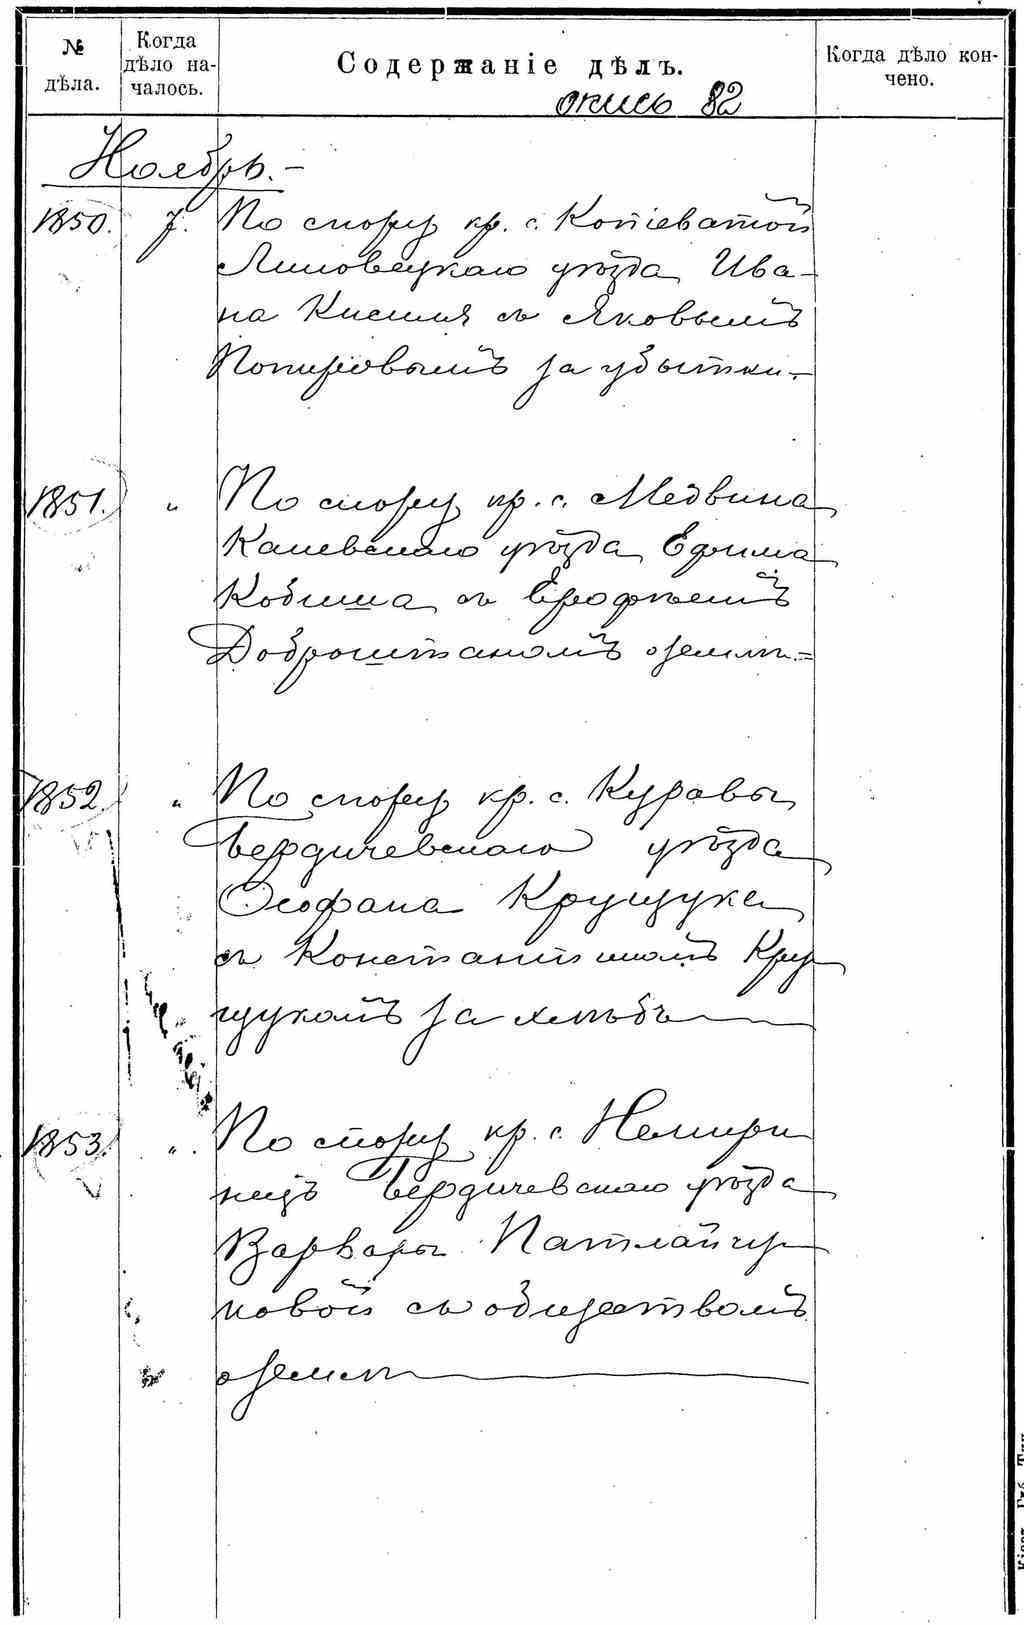 № дѣла.
Когда дѣло на-
чалось.
Содержаніе дѣлъ.
Когда дѣло кон-
чено.
опись 82
Ноябрь.-
1850. 7. По спору кр. с. Копіеватой
Липовецкаго уѣзда Ива-
на Кисиля съ Яковымъ
за убытки.-
1851. " По спору кр. с. Медвина
Каневскаго уѣзда Ефима
Кобиша съ Ерофѣемъ
Доброштаномъ о землѣ.=
1852. " По спору кр. с. Куравы
Бердичевскаго уѣзда
Ѳеофана Крущука
съ Константиномъ Кру
щукомъ за хлѣбъ
1853. " По спору кр. с. Немири
нецъ Бердичевскаго уѣзда
Варвары Патлайчу-
ковой съ обществомъ
о землѣ